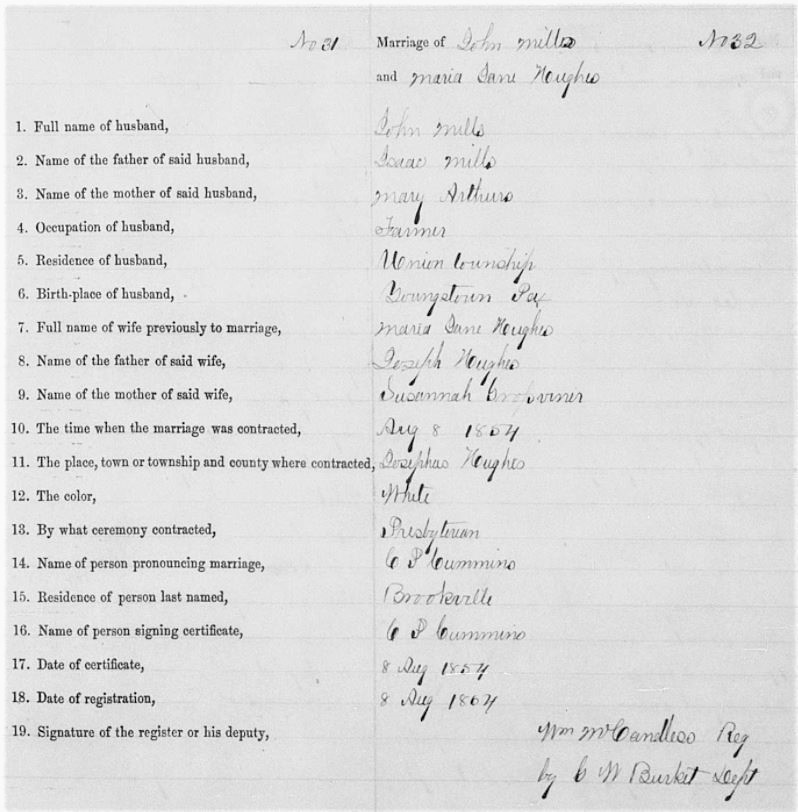 No 31 Marriage of John Mills No 32
and Maria Jane Hughes
1. Full name of husband, John Mills
2. Name of the father of said husband, Isaac Mills
3. Name of the mother of said husband, Mary Arthurs
4. Occupation of husband, Farmer
5. Residence of husband, Union township
6. Birth-place of husband, Youngstown Pa
7. Full name of wife previously to marriage, Maria Jane Hughes
8. Name of the father of said wife, Joseph Hughes
9. Name of the mother of said wife, Susannah
10. The time when the marriage was contracted, Aug 8 1854
11. The place, town or township and county where contracted, Josephus Hughes
12. The color, White
13. By what ceremony contracted, Presbyterian
14. Name of person pronouncing marriage, C P Cummins
15. Residence of person last named, Brookville
16. Name of person signing certificate, C P Cummins
17. Date of certificate, 8 Aug 1854
18. Date of registration, 8 Aug
19. Signature of the register or his deputy, Wm McCandless Reg
by C W Burket Dept